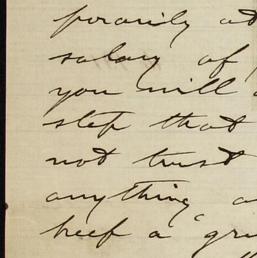 porarily at
salary of
you will
step that
not trust
anything a
keep a "gru